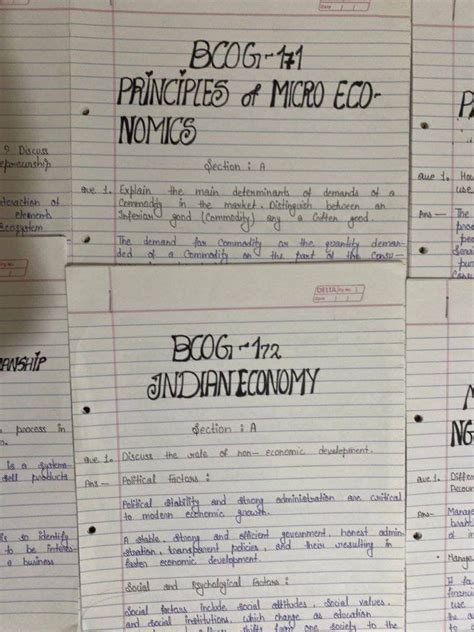 BCOG-171
PRINCIPLES of MICRO ECO-
NOMICS
Section : A
que 1. Explain the main determinants of demands of a
Commodity in the market. Distinguish between an
Inferior good (Commodity) any a Giffen good.
The demand for Commodity or the quantity deman-
ded of a Commodity on the part of the Consu-
? Discuss
epreneurship
nteraction of
elements
Ecosystem
que 1.
Ans —
DELTA Pg No. 1
Date
BCOG-172
INDIAN ECONOMY
Section : A
que 1. Discuss the role of non- economic development.
Ans — Political Factors :
Political stability and strong administration are critical
to modern economic growth.
A stable, strong and efficient government, honest admin-
stration, transparent policies, and their resulting in
fasten economic development.
Social and Psychological Factors :
Social factors include social attitudes, social values,
and social institutions, which change as education
from one society to the
ANSHIP
process in
is a system-
sell products
is so identify
to be interes-
a business
NG-
que 1.
Ans-
Manage